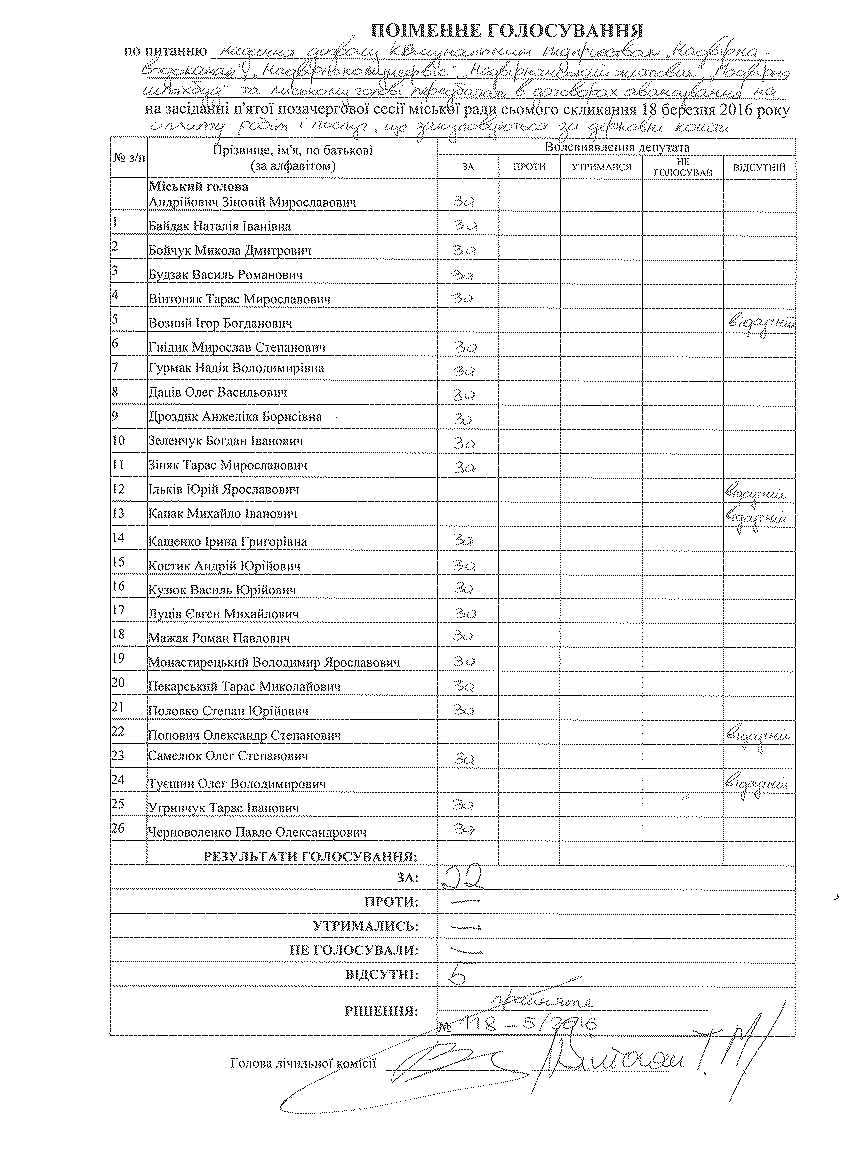 ПОІМЕННЕ ГОЛОСУВАННЯ
по питанню надання дозволу комунальним підприємствам „Надвірна-
водоканал", „Надвірнакомунсервіс", „Надвірнянський житловик", „Надвірна
та міському голові передбачати в договорах авансування на
на засіданні п'ятої позачергової сесії міської ради сьомого скликання 18 березня 2016 року
оплату робіт і послуг, що закуповуються за державні кошти
№ з/п Прізвище, ім'я, по батькові (за алфавітом) Волевиявлення депутата
ЗА ПРОТИ УТРИМАВСЯ НЕ ГОЛОСУВАВ ВІДСУТНІЙ
Міський голова
Андрійович Зіновій Мирославович за
1 Байдак Наталія Іванівна за
2 Бойчук Микола Дмитрович за
3 Будзак Василь Романович за
4 Вінтоняк Тарас Мирославович за
5 Возний Ігор Богданович відсутній
6 Гнідик Мирослав Степанович за
7 Гурмак Надія Володимирівна за
8 Даців Олег Васильович за
9 Дроздик Анжеліка Борисівна за
10 Зеленчук Богдан Іванович за
11 Зіняк Тарас Мирославович за
12 Ільків Юрій Ярославович відсутній
13 Капак Михайло Іванович відсутній
14 Кащенко Ірина Григорівна за
15 Костик Андрій Юрійович за
16 Кузюк Василь Юрійович за
17 Луців Євген Михайлович за
18 Мажак Роман Павлович за
19 Монастирецький Володимир Ярославович за
20 Пекарський Тарас Миколайович за
21 Половко Степан Юрійович за
22 Попович Олександр Степанович відсутній
23 Самелюк Олег Степанович за
24 Туєшин Олег Володимирович відсутній
25 Угринчук Тарас Іванович за
26 Черноволенко Павло Олександрович за
РЕЗУЛЬТАТИ ГОЛОСУВАННЯ:
ЗА: 22
ПРОТИ: —
УТРИМАЛИСЬ: —
НЕ ГОЛОСУВАЛИ: —
ВІДСУТНІ: 5
РІШЕННЯ: прийняте
№ 118-5/2016
Голова лічильної комісії Вінтоняк Т.М